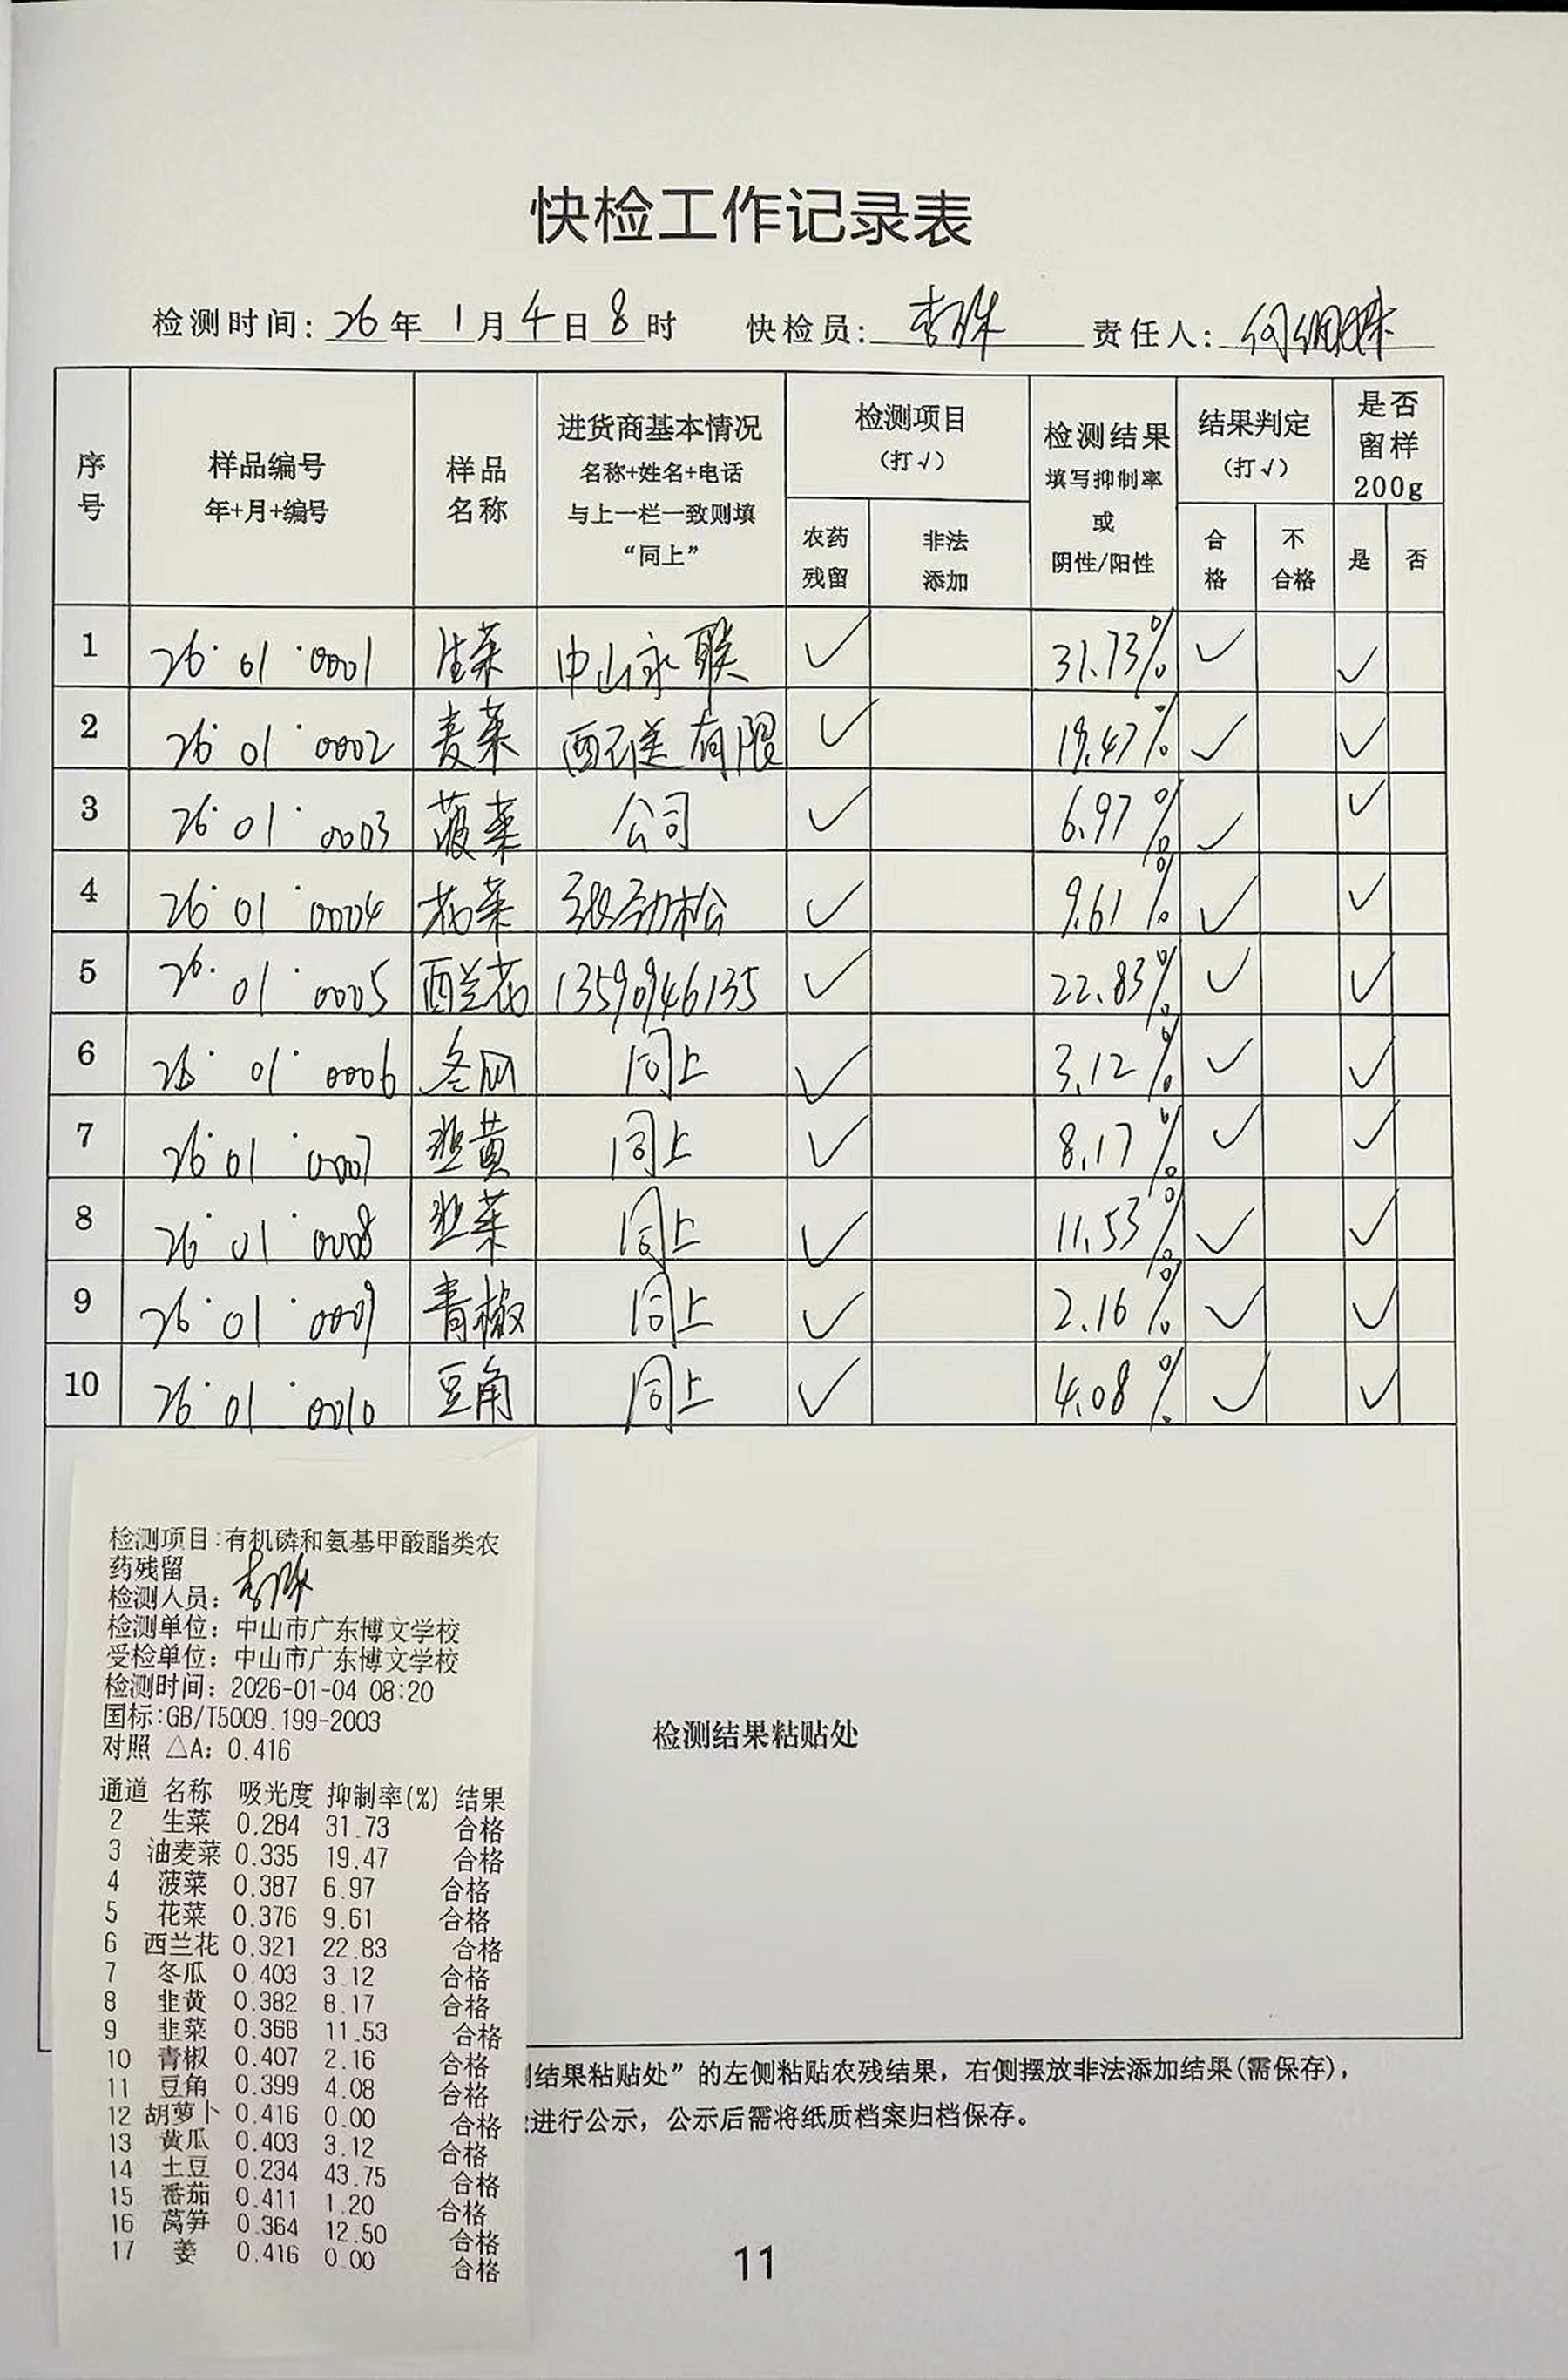 快检工作记录表
检测时间: 26年 1月 4日 8时 快检员: 责任人:
序号 样品编号 年+月+编号 样品名称 进货商基本情况 名称+姓名+电话 与上一栏一致则填“同上” 检测项目(打√) 农药残留 非法添加 检测结果 填写抑制率或阴性/阳性 结果判定(打√) 合格 不合格 是否留样200g 是 否
1 26·01·0001 生菜 中山永联 ✓ 31.73% ✓ ✓
2 26·01·0002 麦菜 配送有限 ✓ 19.47% ✓ ✓
3 26·01·0003 菠菜 公司 ✓ 6.97% ✓ ✓
4 26·01·0004 花菜 张劲松 ✓ 9.61% ✓ ✓
5 26·01·0005 西兰花 13590946135 ✓ 22.83% ✓ ✓
6 26·01·0006 冬瓜 同上 ✓ 3.12% ✓ ✓
7 26·01·0007 韭黄 同上 ✓ 8.17% ✓ ✓
8 26·01·0008 韭菜 同上 ✓ 11.53% ✓ ✓
9 26·01·0009 青椒 同上 ✓ 2.16% ✓ ✓
10 26·01·0010 豆角 同上 ✓ 4.08% ✓ ✓
检测项目:有机磷和氨基甲酸酯类农
药残留
检测人员:
检测单位: 中山市广东博文学校
受检单位: 中山市广东博文学校
检测时间: 2026-01-04 08:20
国标:GB/T5009.199-2003
对照 △A: 0.416
通道 名称 吸光度 抑制率(%) 结果
2 生菜 0.284 31.73 合格
3 油麦菜 0.335 19.47 合格
4 菠菜 0.387 6.97 合格
5 花菜 0.376 9.61 合格
6 西兰花 0.321 22.83 合格
7 冬瓜 0.403 3.12 合格
8 韭黄 0.382 8.17 合格
9 韭菜 0.368 11.53 合格
10 青椒 0.407 2.16 合格
11 豆角 0.399 4.08 合格
12 胡萝卜 0.416 0.00 合格
13 黄瓜 0.403 3.12 合格
14 土豆 0.234 43.75 合格
15 番茄 0.411 1.20 合格
16 莴笋 0.364 12.50 合格
17 姜 0.416 0.00 合格
检测结果粘贴处
结果粘贴处”的左侧粘贴农残结果，右侧摆放非法添加结果(需保存)，
进行公示，公示后需将纸质档案归档保存。
11